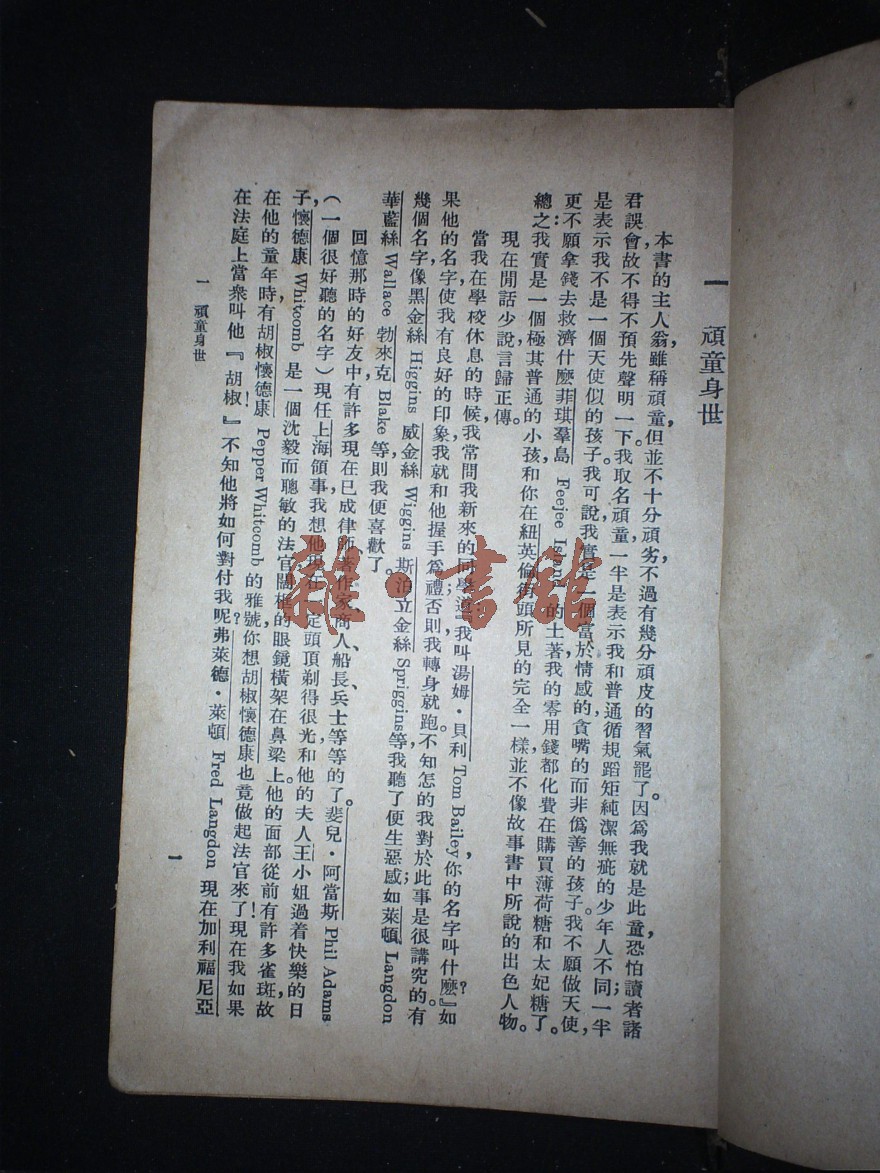 一 頑童身世
本書的主人翁，雖稱頑童，但並不十分頑劣，不過有幾分頑皮的習氣罷了。因爲我就是此童，恐怕讀者諸
君誤會，故不得不預先聲明一下。我取名頑童，一半是表示我和普通循規蹈矩純潔無疵的少年人不同；一半
是表示我不是一個天使似的孩子。我可說我實是一個富於情感的貪嘴的而非僞善的孩子。我不願做天使，
更不願拿錢去救濟什麼菲琪羣島 Feejee Island 的土著，我的零用錢都化費在購買薄荷糖和太妃糖了。
總之：我實是一個極其普通的小孩，和你在紐英倫街頭所見的完全一樣，並不像故事書中所說的出色人物。
現在閒話少說，言歸正傳。
當我在學校休息的時候，我常問我新來的同學道：『我叫湯姆·貝利 Tom Bailey，你的名字叫什麼？』如
果他的名字使我有良好的印象，我就和他握手爲禮；否則我轉身就跑。不知怎的，我對於此事是很講究的。有
幾個名字像黑金絲 Higgins 威金絲 Wiggins 斯泊立金絲 Spriggins 等，我聽了便生惡感；如萊頓 Langdon
華藍絲 Wallace 勃來克 Blake 等，則我便喜歡了。
回憶那時的好友中，有許多現在已成律師、著作家、商人、船長、兵士等等的了。斐兒·阿當斯 Phil Adams
（一個很好聽的名字）現任上海領事，我想他現在一定頭頂剃得很光，和他的夫人王小姐過着快樂的日
子，懷德康 Whitcomb 是一個沈毅而聰敏的法官，闊框的眼鏡橫架在鼻梁上。他的面部從前有許多雀斑，故
在他的童年時，有胡椒懷德康 Pepper Whitcomb 的雅號，你想胡椒懷德康也竟做起法官來了！現在我如果
在法庭上當衆叫他『胡椒！』不知他將如何對付我呢？弗萊德·萊頓 Fred Langdon 現在加利福尼亞
一 頑童身世
1
雜·書館